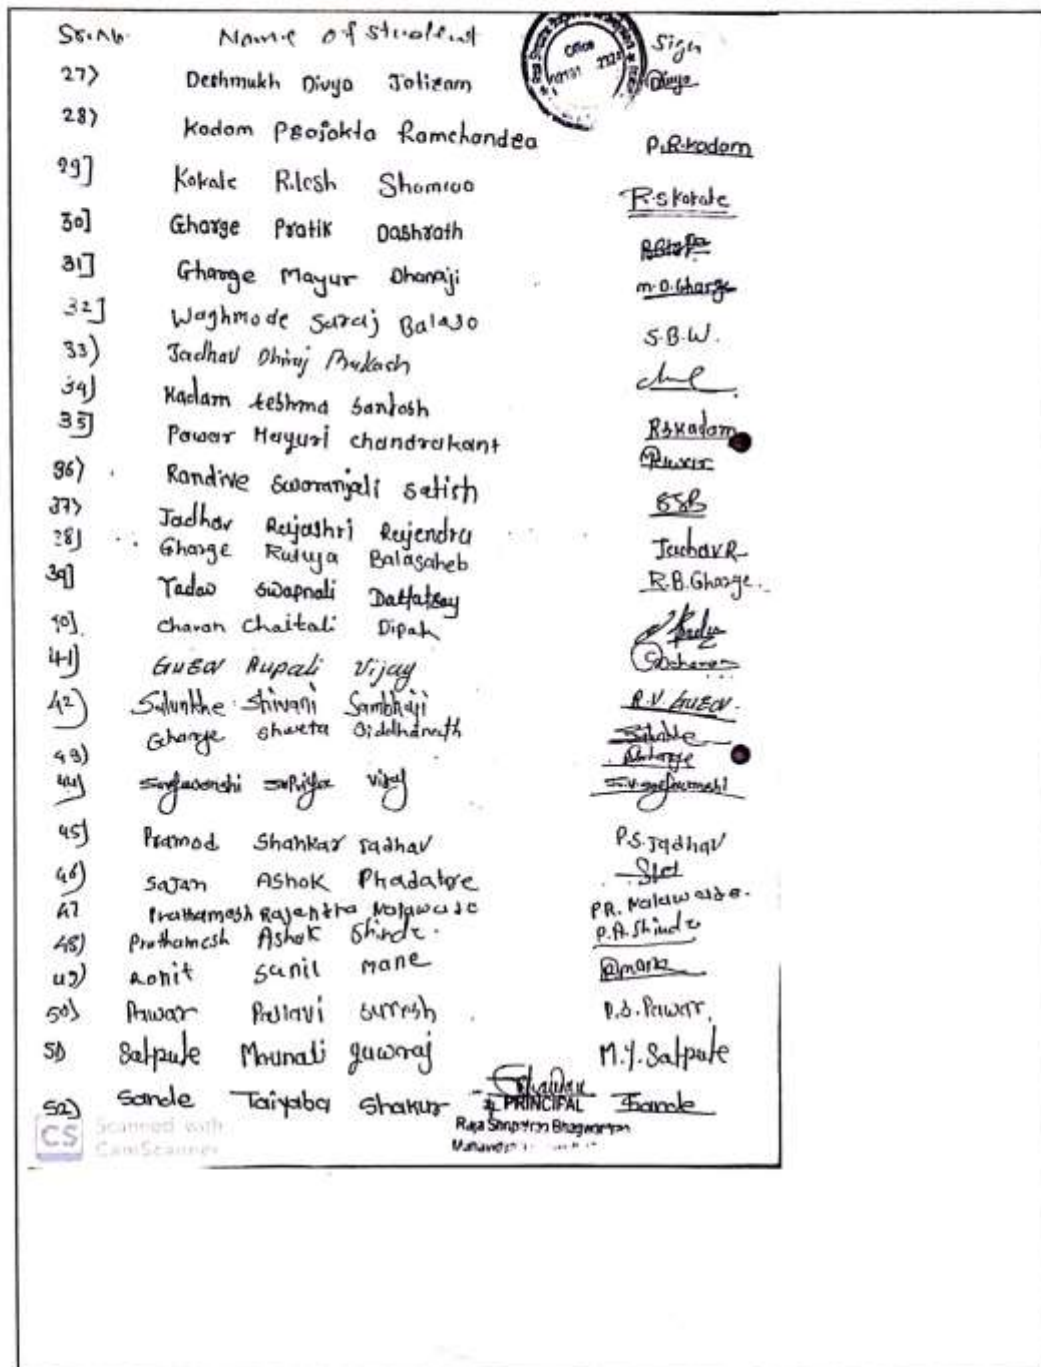 Sr.No. Name of Student Sign
Office
27) Deshmukh Divya Jotiram Divya
28) Kadam Prajakta Ramchandra P.R.Kadam
29] Kokate Ritesh Shamrao R.S Kokate
30] Gharge Pratik Dashrath
31] Gharge Mayur Dhanaji M.D.Gharge
32] Waghmode Suraj Balaso S.B.W.
33) Jadhav Dhiraj Prakash
34) Kadam Reshma Santosh R.S.Kadam
35] Pawar Mayuri Chandrakant Pawar
36) Randive Swaranjali Satish SSR
37) Jadhav Rajashri Rajendra Jadhav R
38] Gharge Rutuja Balasaheb R.B.Gharge.
39] Yadav Swapnali Dattatray
40]. Chavan Chaitali Dipak
41] Gurav Rupali Vijay R.V.Gurav.
42) Salunkhe Shivani Sambhaji
43) Gharge Shweta Siddhanath Gharge
44) Suryawanshi Supriya Viraj S.V.Suryawanshi
45) Pramod Shankar Jadhav P.S.Jadhav
46) Sajan Ashok Phadatare
47 Prathamesh Rajendra Nalawade P.R. Nalawade.
48) Prathamesh Ashok Shinde. P.A.Shinde
49) Ronit Sunil Mane
50) Pawar Pallavi Suresh P.S.Pawar.
51) Satpute Mrunali Yuvraj M.Y.Satpute
52) Sande Taiyaba Shakur Sande
PRINCIPAL
Raja Shripatrao Bhagwantrao
CS Scanned with
CamScanner